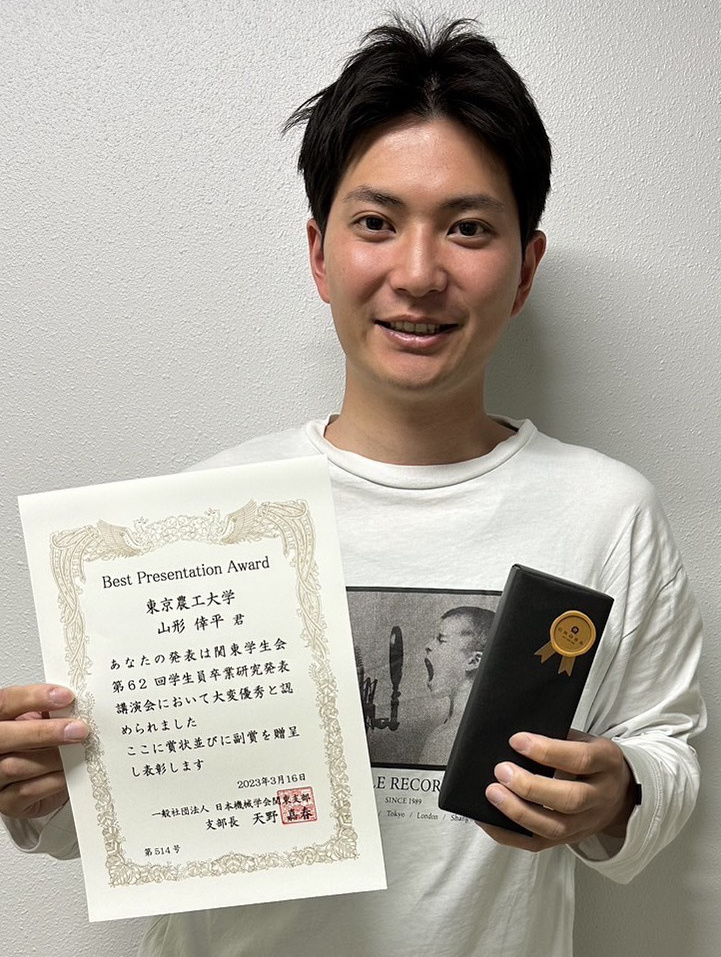 Best Presentation Award
東京農工大学
山形 倖平 君
あなたの発表は関東学生会
第62回学生員卒業研究発表
講演会において大変優秀と認
められました
ここに賞状並びに副賞を贈呈
し表彰します
2023年3月16日
一般社団法人 日本機械学会関東支部
支部長 天野 嘉春
第514号
LE RECOR
SINCE 1989
Tokyo / London / Shang
CROSS